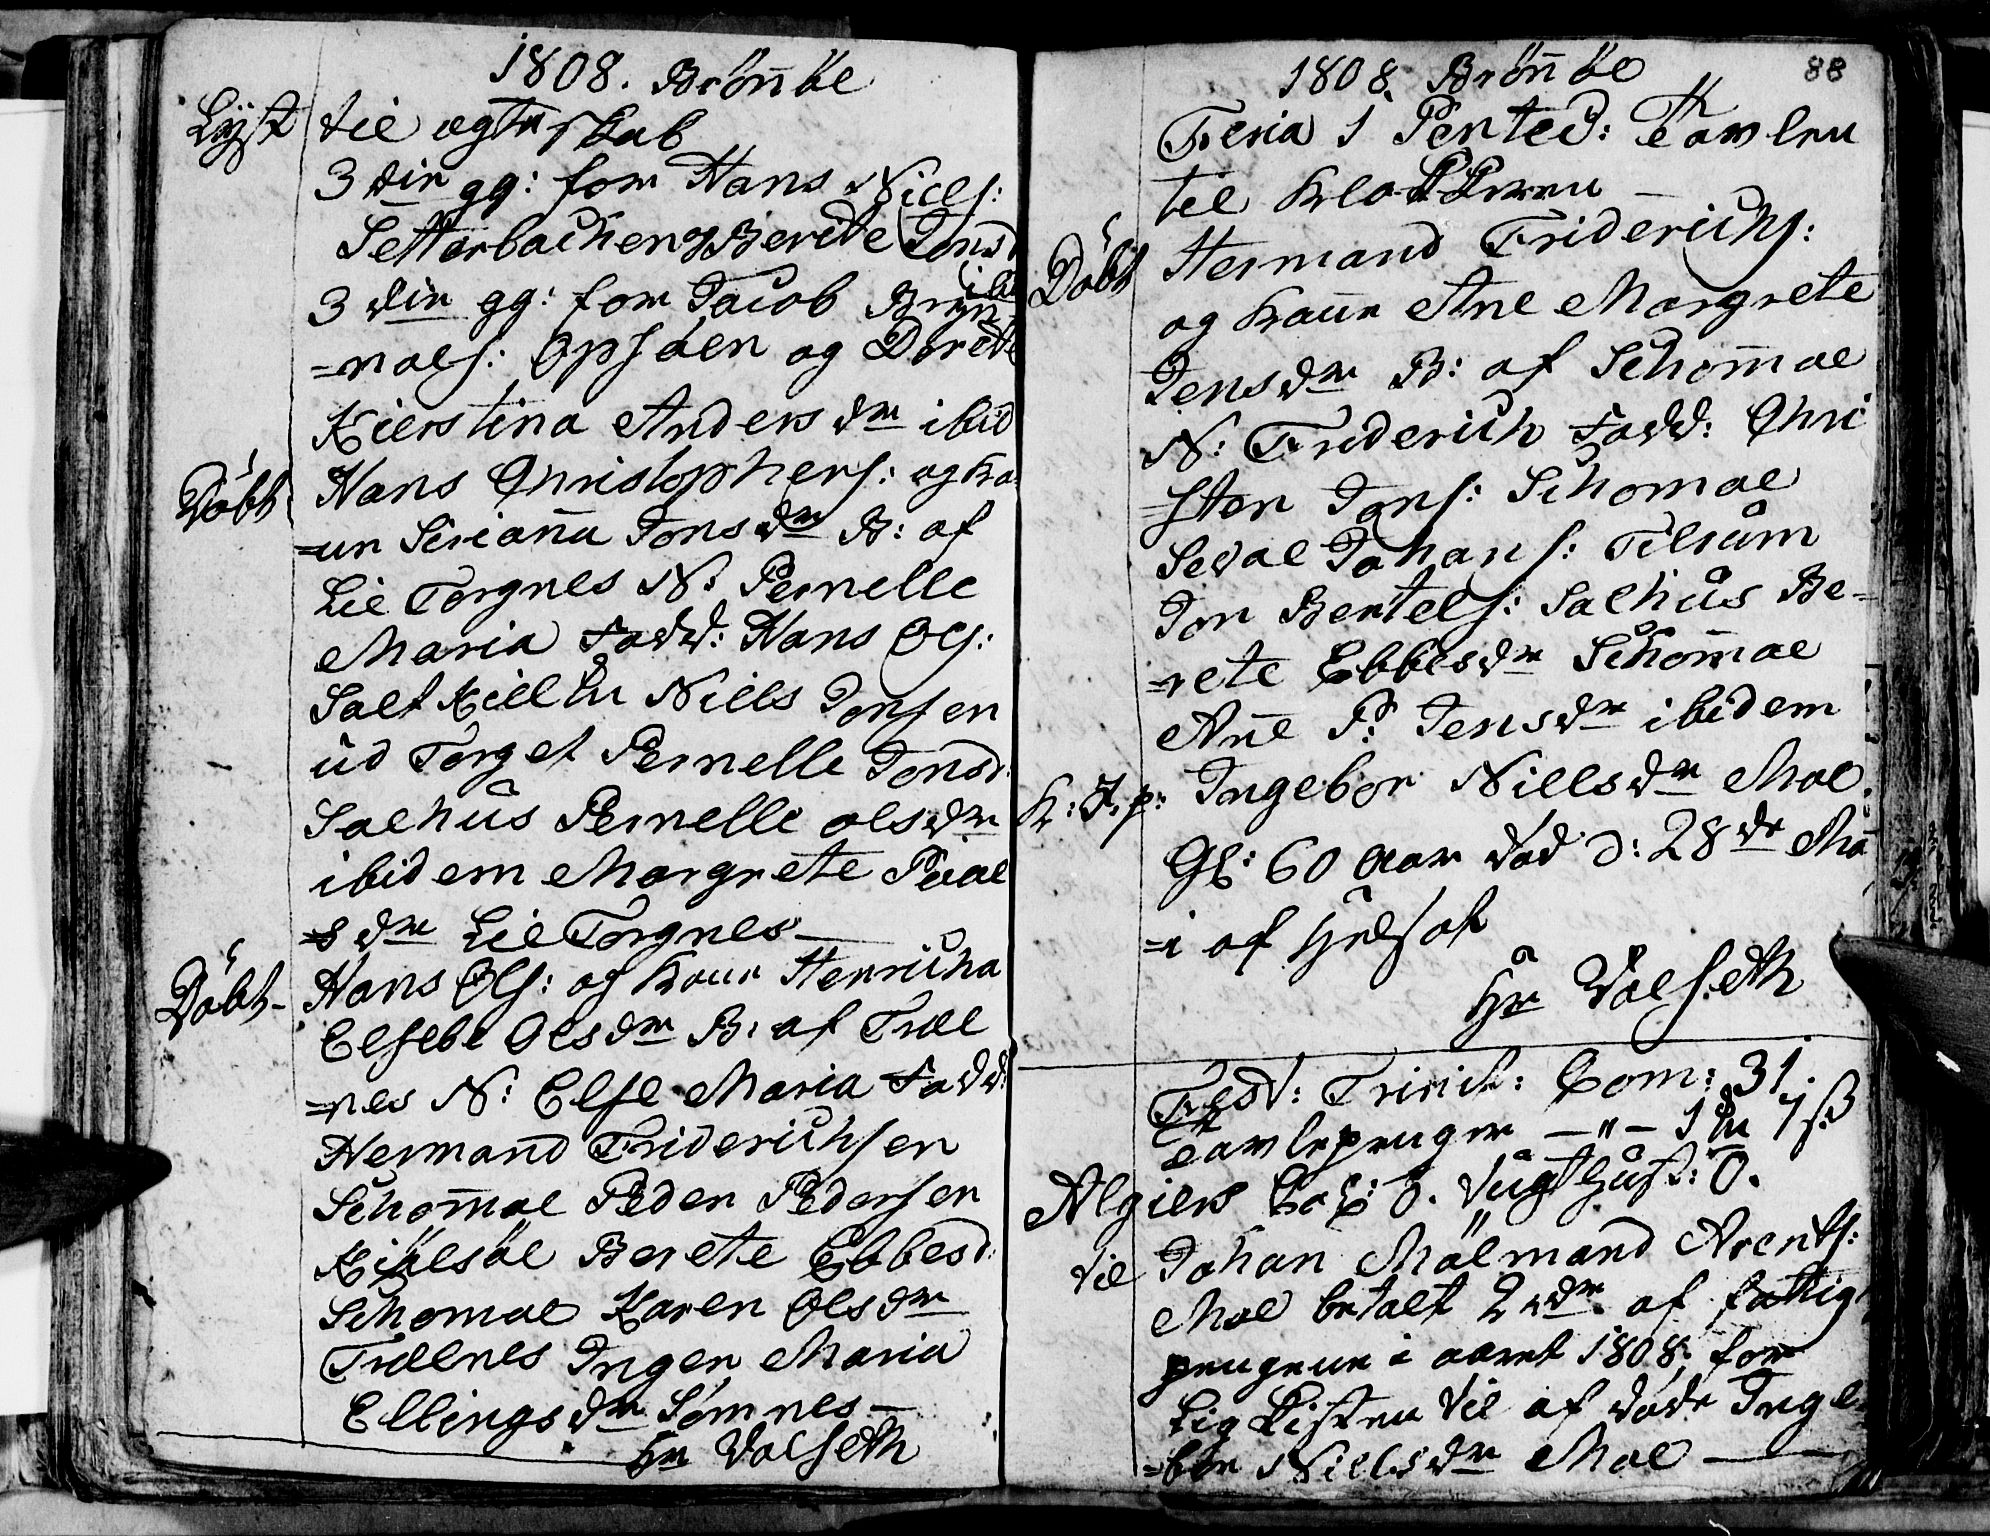 1808. Brönöe
Lyst til ægteskab
3die gg: for Hans Niels:
Setterbachen og Berete Jonsd
ibd
3die gg: for Jacob Bryn
=nols: Opsöen og Dorette
Kierstina Andersdr ibid
Döbt Hans Christophers: og ko
=ne Siriana Jonsdr B: af
Lil Torgnes N: Pernelle
Maria Fadd: Hans Ols:
Salt Niels Jonsen
ud Torget Pernelle Jonsd:
Salhus Pernelle olsdr
ibidem Margrete Poal
=sdr Lil Torgnes
Döbt Hans Ols: og kone Henricha
Elsebe Olsdr B: af Træl
=nes N: Else Maria Fadd:
Hermand Friderichsen
Schomoe Peder Pedersen
Kiölsöe Berete Ebbesd:
Schomoe Karen Olsdr
Trælnes Inger Maria
Ellingsdr Sömnes
Hr Volseth
1808. Brönöe 88
Feria 1 Pented: Tavlen
til Klokkeren
Döbt Hermand Friderichs:
og kone Ane Margrete
Jensdr B: af Schomoe
N: Friderich Fadd: Chri
=sten Jons: Schomoe
Sevol Johans: Tilrum
Jon Bertels: Salhus Be-
=rete Ebbesdr Schomoe
Ane P: Jensdr ibidem
K: J. p: Ingebor Nielsdr Moe.
Gl: 60 Aar död d: 28de Ma
=i af helsot
Hr Volseth
Fest: Trinit: Com: 31.
Tavlepenger — " — 1 7 ß
Algiers 0. Tugthust: 0.
til Johan Mölmand Arents:
Moe betalt 2 rdr. af fattig
pengene i aaret 1808, for
Lig Kisten til afdöde Inge
=bor Nielsdr Moe